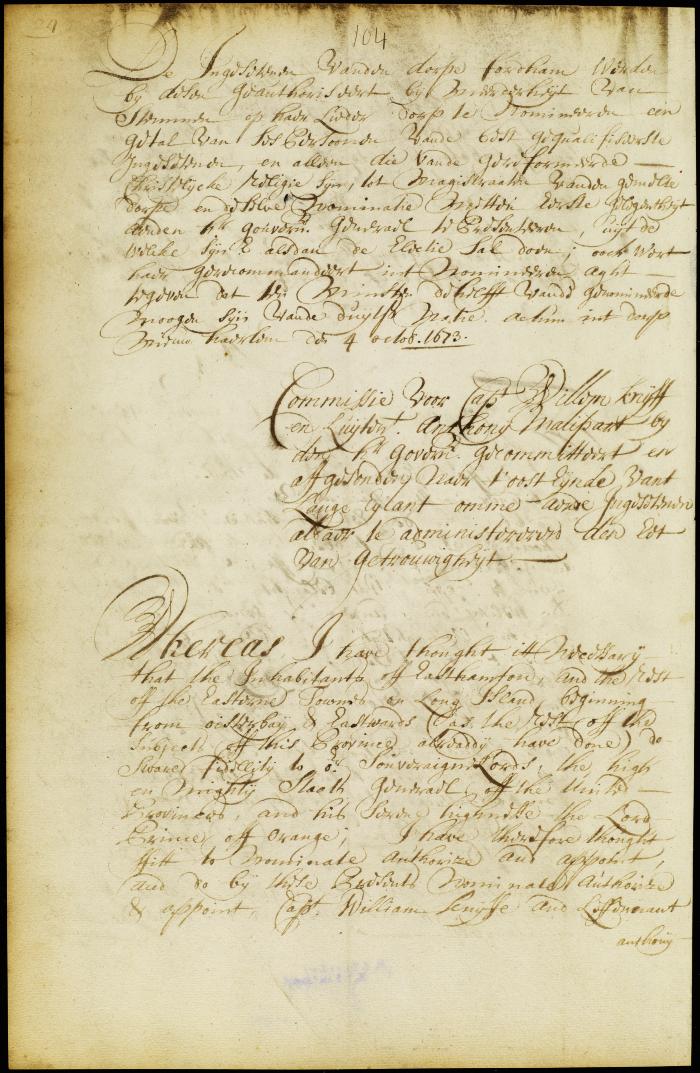 24
104
De Ingesetenen vanden dorpe fordham werden
by desen geauthoriseert by meerderheyt van
Stemmen op haer Lieder dorp te Nomineeren een
getal van ses Persoonen vande best gequalificeerste
Ingesetenen, en alleen die vande gereformeerde
Christelycke Religie syn, tot Magistraaten vanden gemelte
dorpe en deselve Nominatie metten Eerste gelegentheyt
aenden hr gouvernr. Generael te Presenteeren, uyt de
welke syn E alsdan de Electie sal doen; oock wort
haer gerecommandeert int Nomineeren acht
tegeven dat ten minsten de helft vande genomineerde
moogen syn vande duytse Natie. Actum int dorp
Nieuw haerlem den 4 octob. 1673.
Commissie voor Capt Willem knyff
en Luytent. Anthony Malipart by
den hr Governr. gecommitteert en
affgesonden naer t'oost Eynde vant
Lange Eylant omme aende Ingesetenen
aldaer te administreeren den Eet
van getrouwigheyt
Whereas I have thought itt Necessary
that the Inhabitants off Easthampton, and the Rest
off the Easterne Townes on Long Island beginning
from oisterbay & Eastwards (as the Rest off the
Subjects off this Province allready have done) do
Sweare fidelity to or. Souveraigne Lords, the high
en mighty Staets Generael, off the United
Provinces, and his Serene highnesse the Lord
Prince off Orange; I have therefore thought
fitt to Nominate Authorize and appoint,
and do by these Presents Nominate Authorize
& appoint, Capt. William knyffe and Lieftenant
anthony